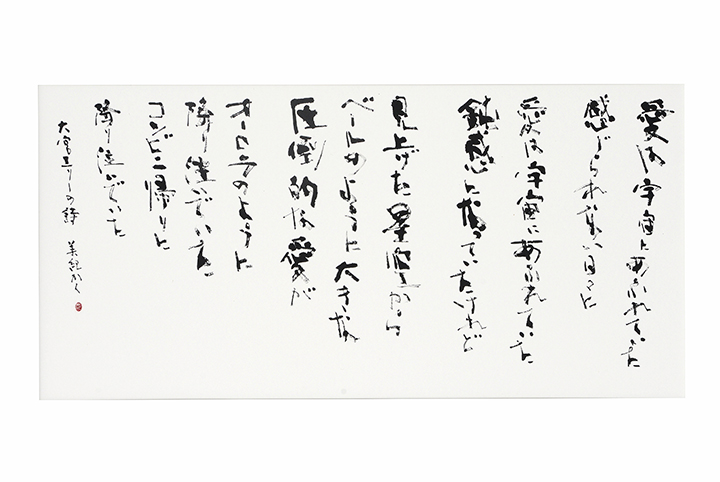 愛は宇宙にあふれていた
感じられない日々に
愛は宇宙にあふれていた
鈍感になっていたけれど
見上げた星空からは
ベールのように大きな
圧倒的な愛が
オーロラのように
降り注いでいた
コンビニ帰りに
降り注いでいた
大宮エリーの詩 美紀かく